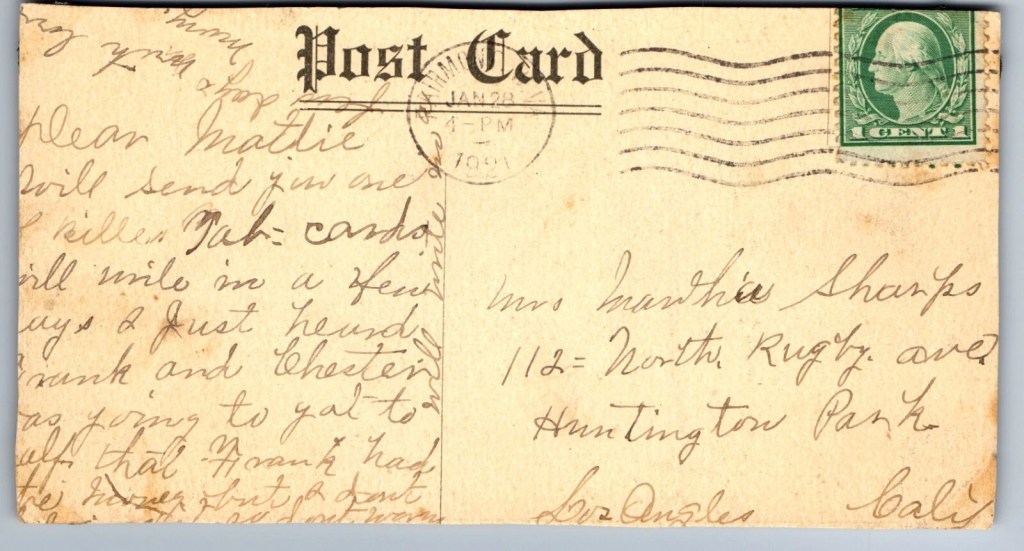 Post Card
JAN 28
4-PM
1921
1 CENT 1
Dear Mattie
will send you one
killer Tab= cards
will write in a few
ays & Just heard
rank and Chester
as going to yal to
alf that Frank had
money but I dont
dont worry
will write
Mrs Martha Sharps
112= North. Rugby. ave.
Huntington Park.
Los Angles Calif